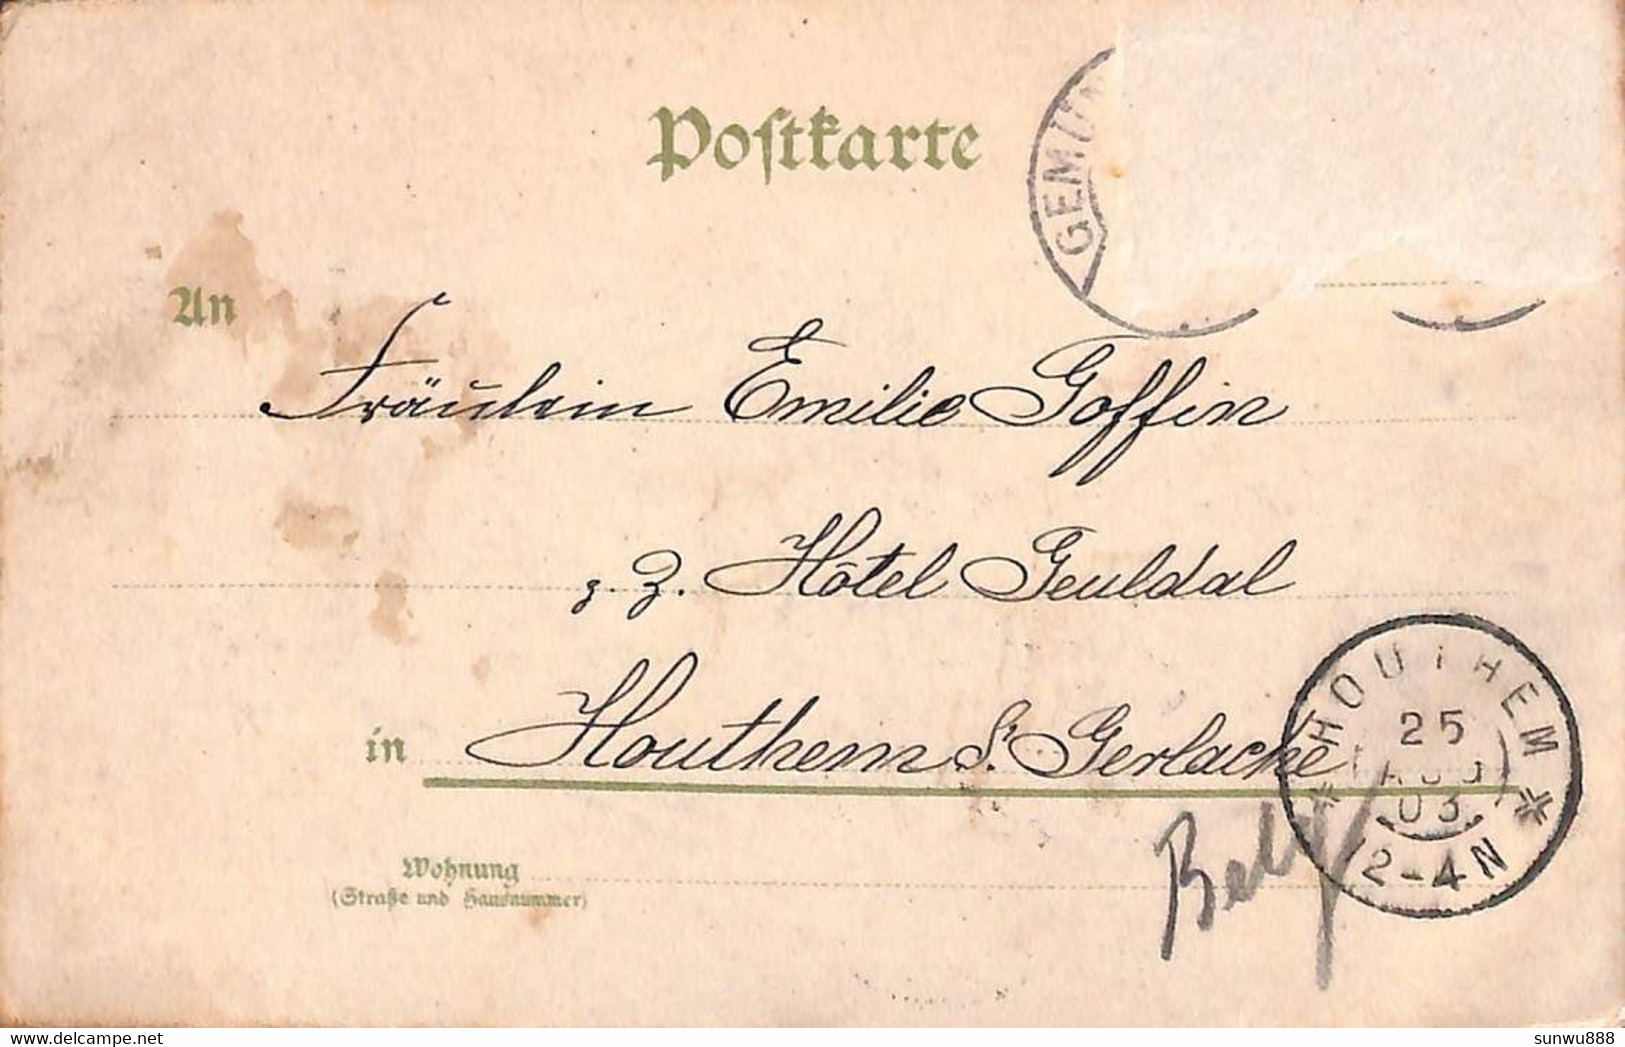 Postkarte
GEMÜN
An
Fräulein Emilie Goffin
z. Z. Hôtel Geuldal
in Houthem St. Gerlache
HOUTHEM
25
AUG
03
12-4N
Belg
Wohnung
(Straße und Hausnummer)
sunwu888